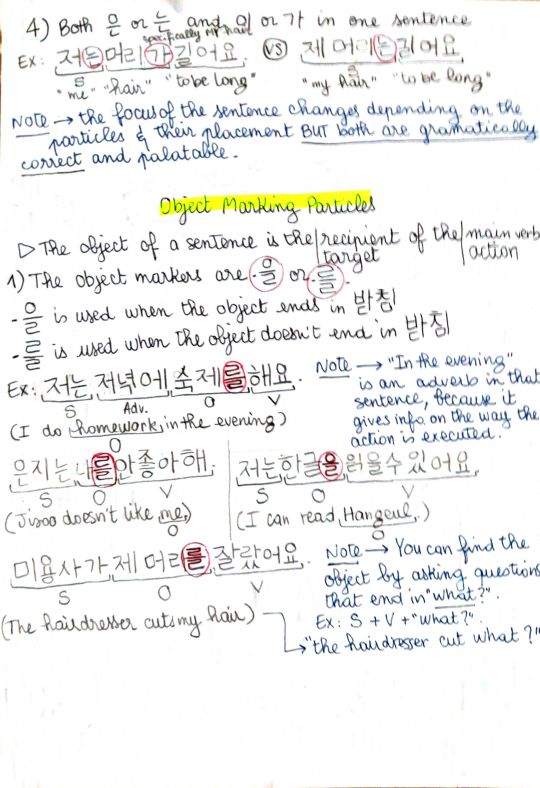 4) Both 은 or 는 and 이 or 가 in one sentence
specifically MY hair
Ex: 저는 머리가 길어요. VS 제 머리는 길어요.
S S
"me" "hair" "to be long" "my hair" "to be long"
Note → the focus of the sentence changes depending on the
particles & their placement BUT both are gramatically
correct and palatable.
Object Marking Particles
▷ The object of a sentence is the recipient of the main verb
target action
1) The object markers are -을 or -를.
-을 is used when the object ends in 받침
-를 is used when the object doesn't end in 받침
Ex: 저는 저녁에 숙제를 해요.
S Adv. O V
(I do homework in the evening)
O
Note → "In the evening"
is an adverb in that
sentence, because it
gives info on the way the
action is executed.
은지는 나를 안 좋아해.
S O V
(Jisoo doesn't like me.)
O
저는 한글을 읽을 수 있어요.
S O V
(I can read Hangeul.)
O
미용사가 제 머리를 잘랐어요.
S O V
(The hairdresser cuts my hair)
Note → You can find the
object by asking questions
that end in "what?".
Ex: S + V + "what?".
→ "the hairdresser cut what?"